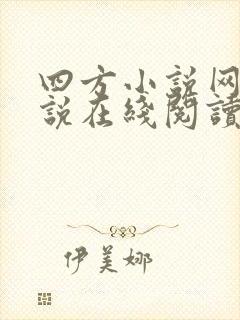 四方小说网
説在綫閱讀
伊美娜